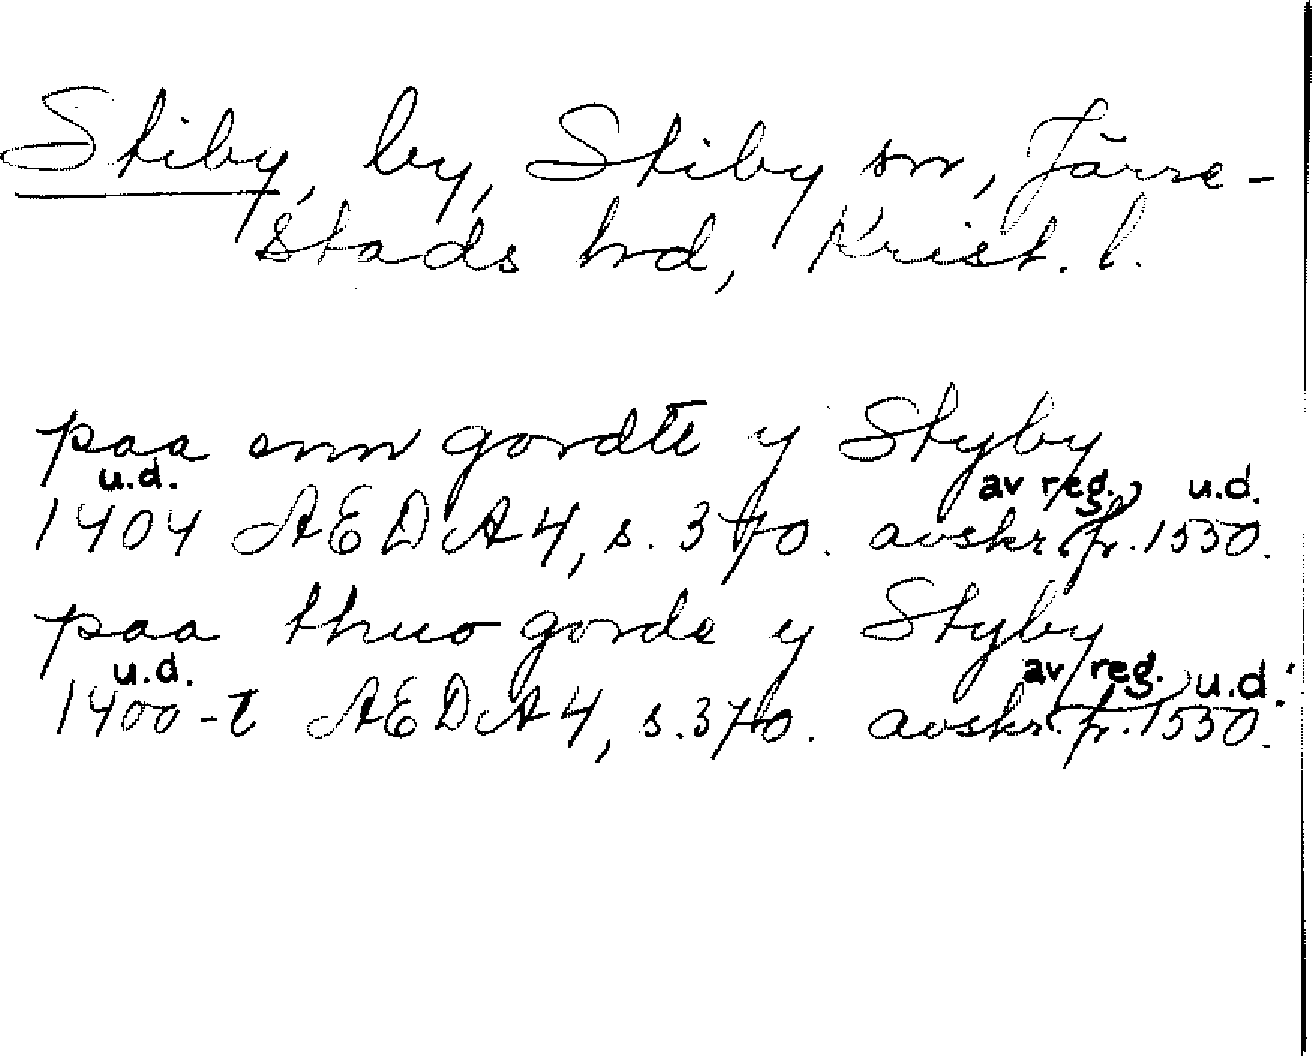 Stiby, by, Stiby sn, Järre-
stads hd, Krist. l.
paa enn gordtt y Styby
u.d. av reg. u.d.
1404 ÆDA 4, s. 370. avskr. fr. 1550.
paa thuo gorde y Styby
u.d. av reg. u.d.
1400-t ÆDA 4, s. 370. avskr. fr. 1550.